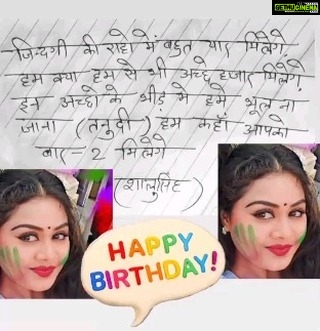 GETHU CINEMA
जिन्दगी की राहो में बहुत यार मिलेंगे,
हम क्या हम से भी अच्छे हजार मिलेंगे,
इन अच्छो के भीड़ मे हमे भूल ना
जाना (तनुदी) हम कहाँ आपको
बार-2 मिलेंगे
(शालुसिंह)
HAPPY
BIRTHDAY!